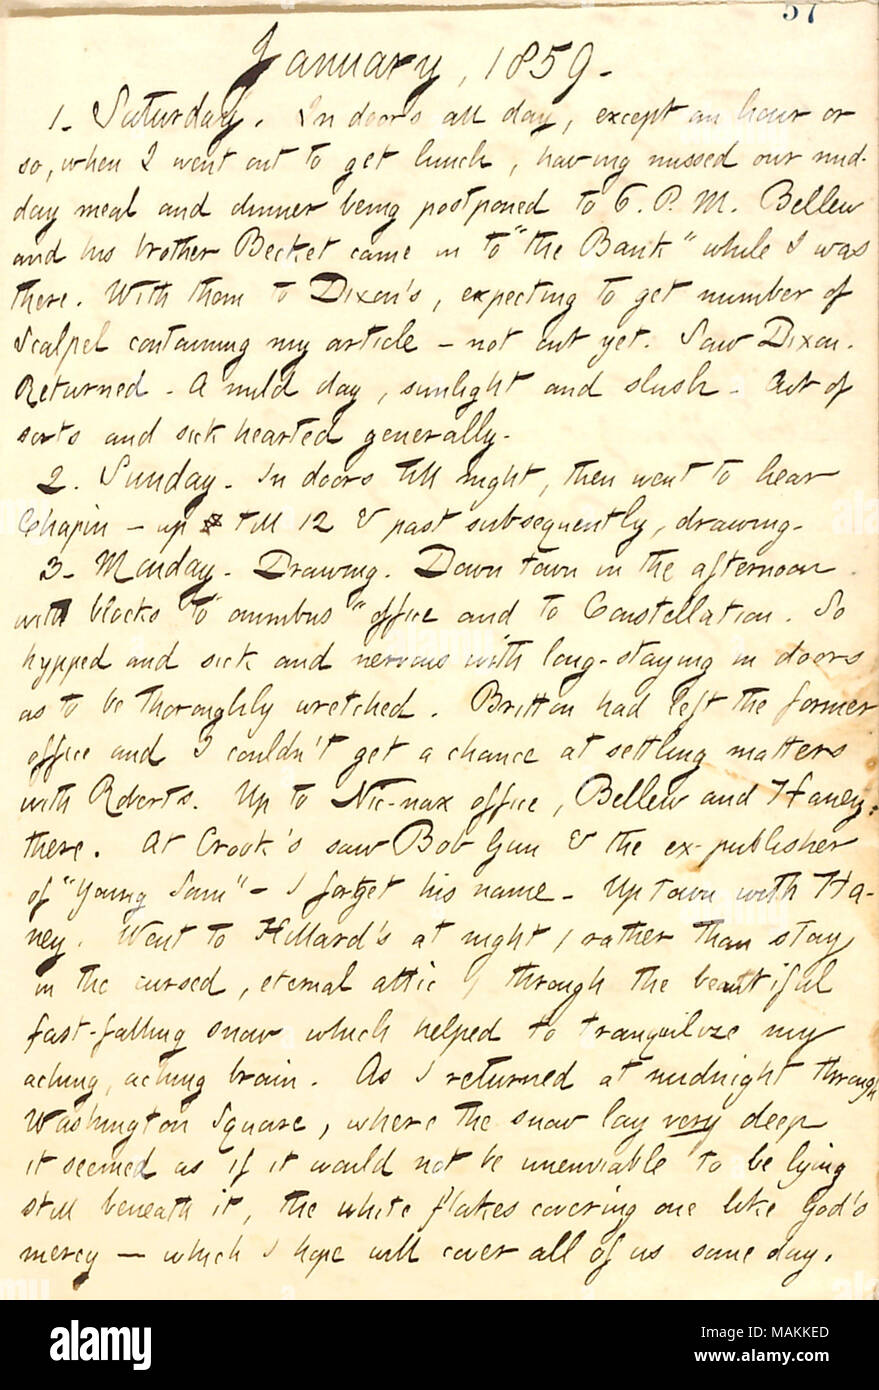 57
January, 1859.
1. Saturday. In doors all day, except an hour or
so, when I went out to get lunch, having missed our mid-
day meal and dinner being postponed to 6. P. M. Bellew
and his brother Becket came in to "the Bank" while I was
there. With them to Dixon's, expecting to get number of
Scalpel containing my article - not out yet. Saw Dixon.
Returned. A mild day, sunlight and slush. Out of
sorts and sick hearted generally.
2. Sunday. In doors till night, then went to hear
Chapin - up till 12 & past subsequently, drawing.
3. Monday. Drawing. Down town in the afternoon
with blocks to "omnibus" office and to Constellation. So
hypped and sick and nervous with long-staying in doors
as to be thoroughly wretched. Britton had left the former
office and I couldn't get a chance at settling matters
with Roberts. Up to Nic-nax office, Bellew and Haney
there. At Crook's saw Bob Gun & the ex-publisher
of "Young Sam" - I forget his name. Up town with Ha-
ney. Went to Hillard's at night (rather than stay
in the cursed, eternal attic) through the beautiful
fast-falling snow which helped to tranquilize my
aching, aching brain. As I returned at midnight through
Washington Square, where the snow lay very deep
it seemed as if it would not be unenviable to be lying
still beneath it, the white flakes covering one like God's
mercy - which I hope will cover all of us some day.
alamy
Image ID: MAKKED
www.alamy.com